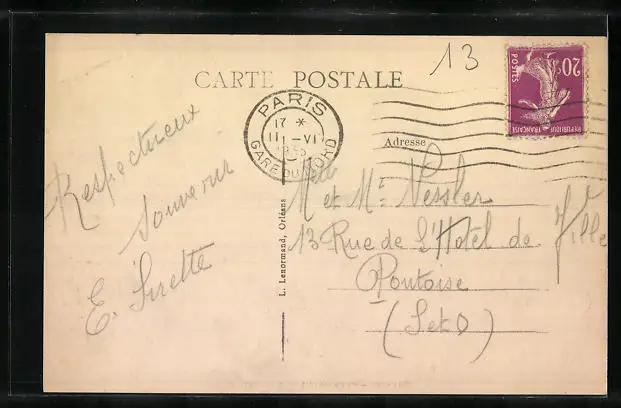 13
CARTE POSTALE
20c
POSTES
REPUBLIQUE FRANÇAISE
PARIS
17 *
11 -VI
1935
GARE DU NORD
Adresse
Respectueux
Souvenir
E. Surette
L. Lenormand, Orléans
Mlle et Mr Nessler
13 Rue de L'Hotel de Ville
Pontoise
(S et O)